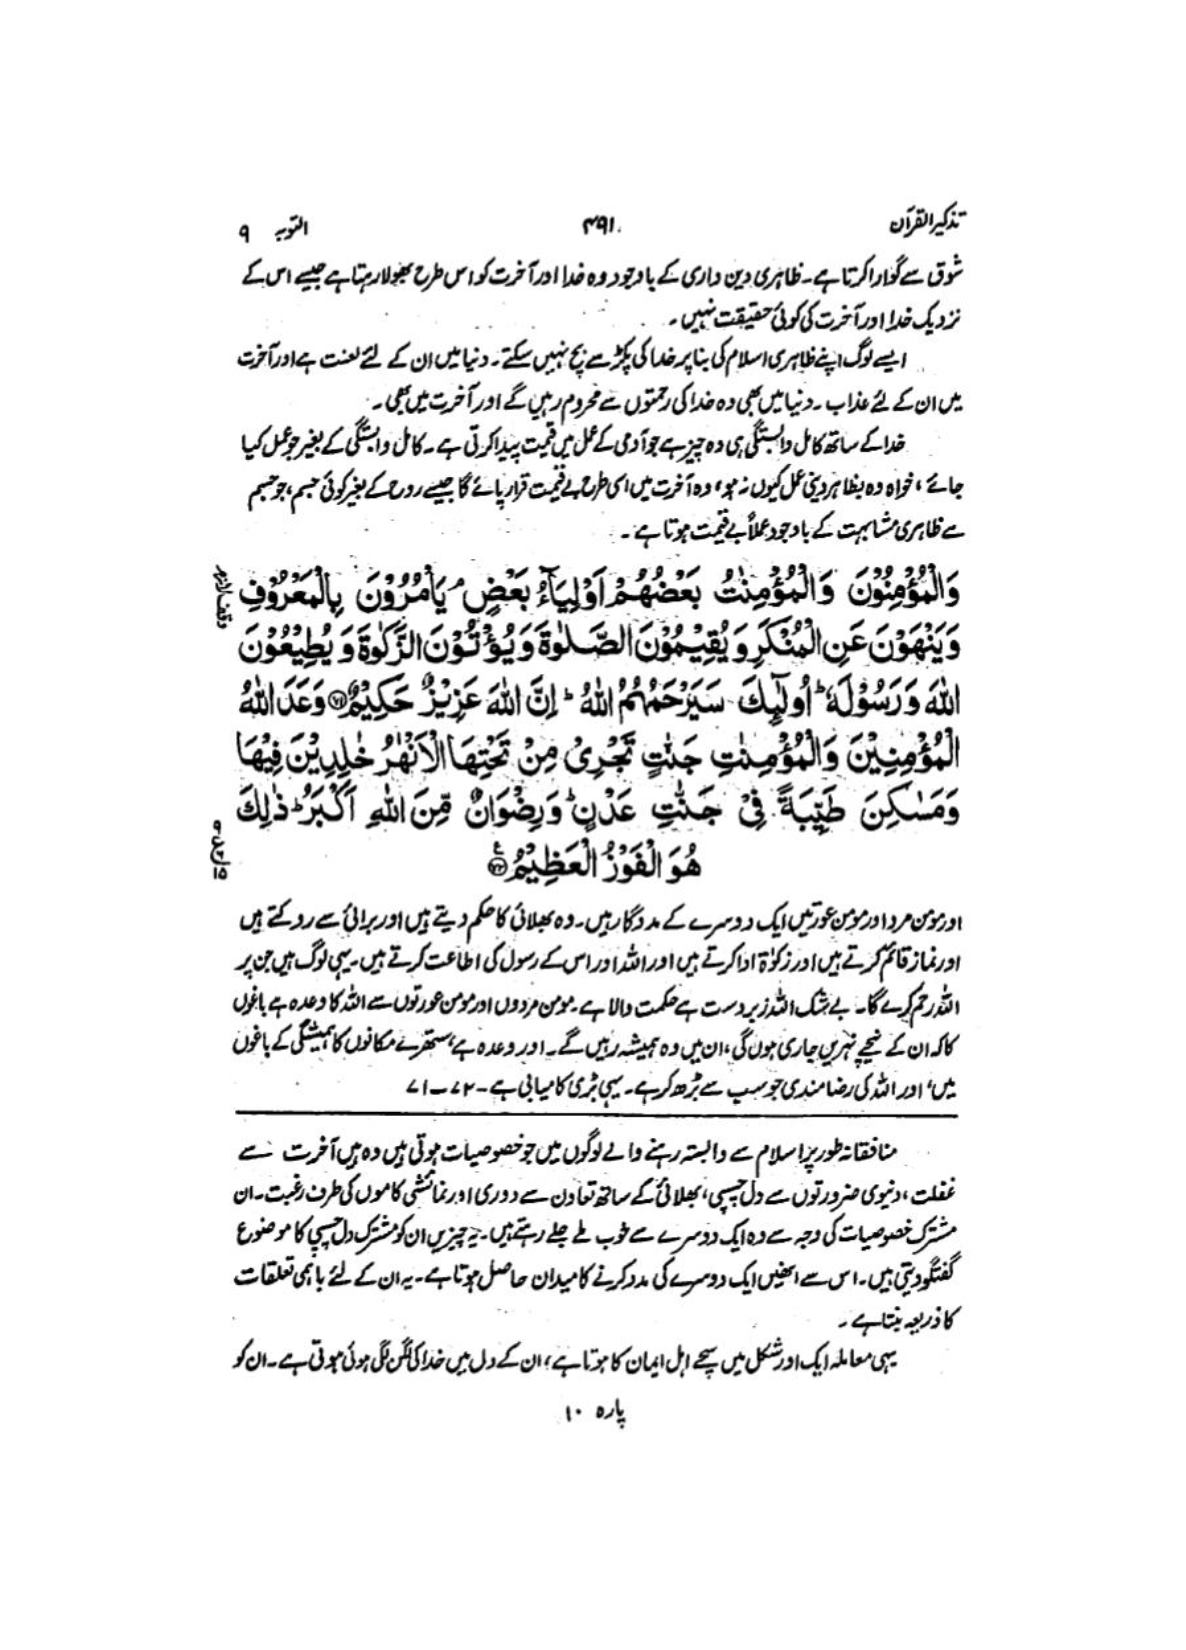 تذکیر القرآن ۴۹۱ التوبہ ۹
شوق سے گوارا کرتا ہے۔ ظاہری دین داری کے باوجود وہ خدا اور آخرت کو اس طرح بھولا رہتا ہے جیسے اس کے
نزدیک خدا اور آخرت کی کوئی حقیقت نہیں۔
ایسے لوگ اپنے ظاہری اسلام کی بنا پر خدا کی پکڑ سے بچ نہیں سکتے۔ دنیا میں ان کے لئے لعنت ہے اور آخرت
میں ان کے لئے عذاب۔ دنیا میں بھی وہ خدا کی رحمتوں سے محروم رہیں گے اور آخرت میں بھی۔
خدا کے ساتھ کامل وابستگی ہی وہ چیز ہے جو آدمی کے عمل میں قیمت پیدا کرتی ہے۔ کامل وابستگی کے بغیر جو عمل کیا
جائے، خواہ وہ بظاہر دینی عمل کیوں نہ ہو، وہ آخرت میں اسی طرح بے قیمت قرار پائے گا جیسے روح کے بغیر کوئی جسم، جو جسم
سے ظاہری مشابہت کے باوجود عملاً بے قیمت ہوتا ہے۔
وَالْمُؤْمِنُوْنَ وَالْمُؤْمِنٰتُ بَعْضُهُمْ اَوْلِيَآءُ بَعْضٍ ۘ يَاْمُرُوْنَ بِالْمَعْرُوْفِ
وَيَنْهَوْنَ عَنِ الْمُنْكَرِ وَيُقِيْمُوْنَ الصَّلٰوةَ وَيُؤْتُوْنَ الزَّكٰوةَ وَيُطِيْعُوْنَ
اللّٰهَ وَرَسُوْلَهٗ ؕ اُولٰٓئِكَ سَيَرْحَمُهُمُ اللّٰهُ ؕ اِنَّ اللّٰهَ عَزِيْزٌ حَكِيْمٌ ﴿۷۱﴾ وَعَدَ اللّٰهُ
الْمُؤْمِنِيْنَ وَالْمُؤْمِنٰتِ جَنّٰتٍ تَجْرِيْ مِنْ تَحْتِهَا الْاَنْهٰرُ خٰلِدِيْنَ فِيْهَا
وَمَسٰكِنَ طَيِّبَةً فِيْ جَنّٰتِ عَدْنٍ ؕ وَرِضْوَانٌ مِّنَ اللّٰهِ اَكْبَرُ ؕ ذٰلِكَ
هُوَ الْفَوْزُ الْعَظِيْمُ ﴿۷۲﴾ ع
اور مومن مرد اور مومن عورتیں ایک دوسرے کے مددگار ہیں۔ وہ بھلائی کا حکم دیتے ہیں اور برائی سے روکتے ہیں
اور نماز قائم کرتے ہیں اور زکوٰۃ ادا کرتے ہیں اور اللہ اور اس کے رسول کی اطاعت کرتے ہیں۔ یہی لوگ ہیں جن پر
اللہ رحم کرے گا۔ بے شک اللہ زبردست ہے حکمت والا ہے۔ مومن مردوں اور مومن عورتوں سے اللہ کا وعدہ ہے باغوں
کا کہ ان کے نیچے نہریں جاری ہوں گی، ان میں وہ ہمیشہ رہیں گے۔ اور وعدہ ہے ستھرے مکانوں کا ہمیشگی کے باغوں
میں، اور اللہ کی رضامندی جو سب سے بڑھ کر ہے۔ یہی بڑی کامیابی ہے۔ ۷۲۔۷۱
منافقانہ طور پر اسلام سے وابستہ رہنے والے لوگوں میں جو خصوصیات ہوتی ہیں وہ ہیں آخرت سے
غفلت، دنیوی ضرورتوں سے دل چسپی، بھلائی کے ساتھ تعاون سے دوری اور نمائشی کاموں کی طرف رغبت۔ ان
مشترک خصوصیات کی وجہ سے وہ ایک دوسرے سے خوب ملے جلے رہتے ہیں۔ یہ چیزیں ان کو مشترک دل چسپی کا موضوع
گفتگو دیتی ہیں۔ اس سے انھیں ایک دوسرے کی مدد کرنے کا میدان حاصل ہوتا ہے۔ یہ ان کے لئے باہمی تعلقات
کا ذریعہ بنتا ہے۔
یہی معاملہ ایک اور شکل میں سچے اہل ایمان کا ہوتا ہے، ان کے دل میں خدا کی لگن لگی ہوئی ہوتی ہے۔ ان کو
پارہ ۱۰